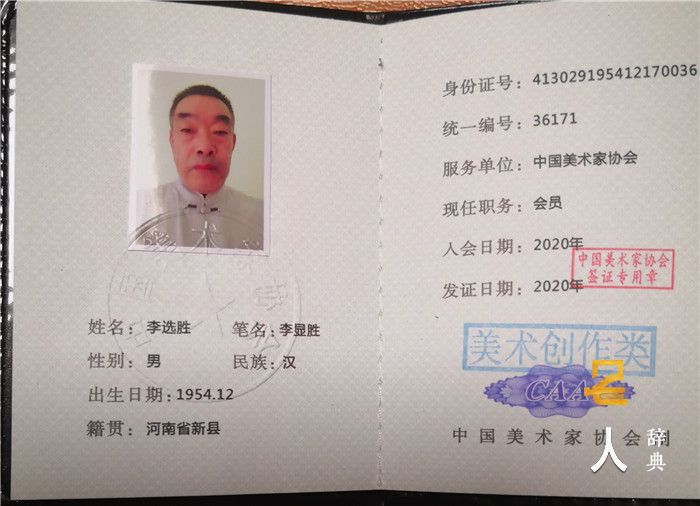 姓名：李选胜 笔名：李显胜
性别：男 民族：汉
出生日期：1954.12
籍贯：河南省新县
身份证号：413029195412170036
统一编号：36171
服务单位：中国美术家协会
现任职务：会员
入会日期：2020年
发证日期：2020年
中国美术家协会
签证专用章
美术创作类
CAA
中国美术家协会制
人 辞典